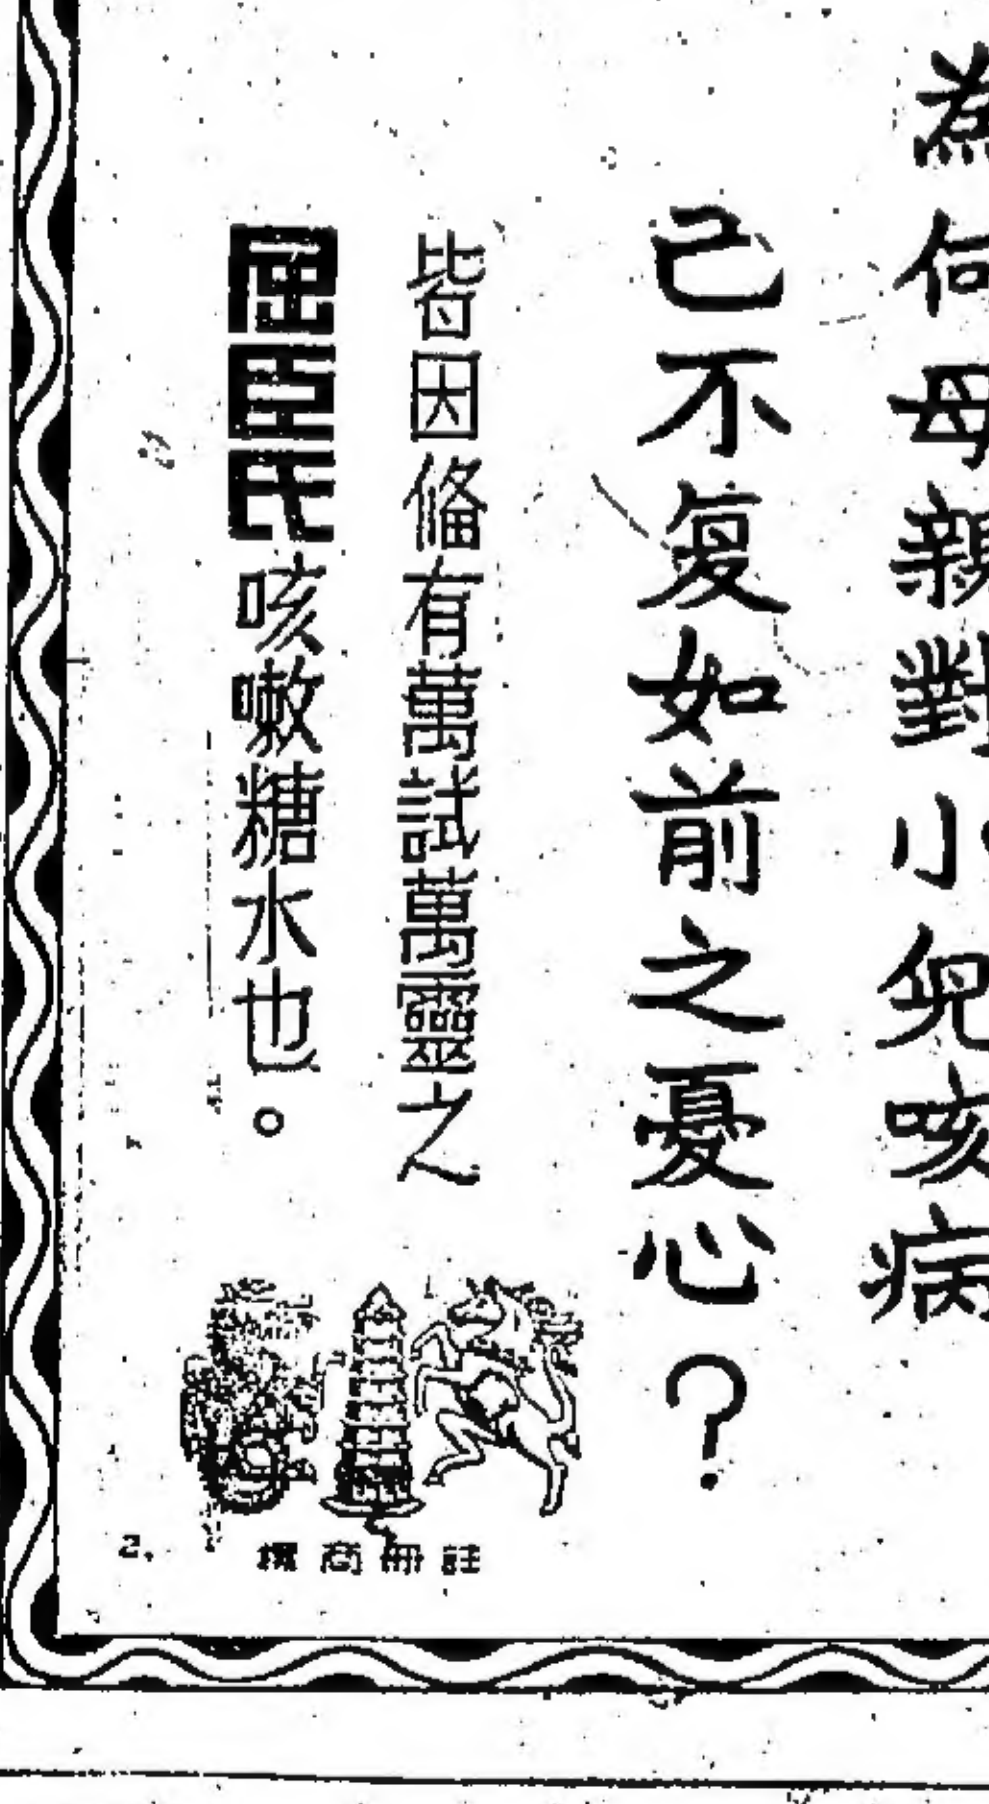 為何母親對小兒咳病
已不复如前之憂心？
皆因俻有萬試萬靈之
屈臣氏咳嗽糖水也。
註冊商標
2.